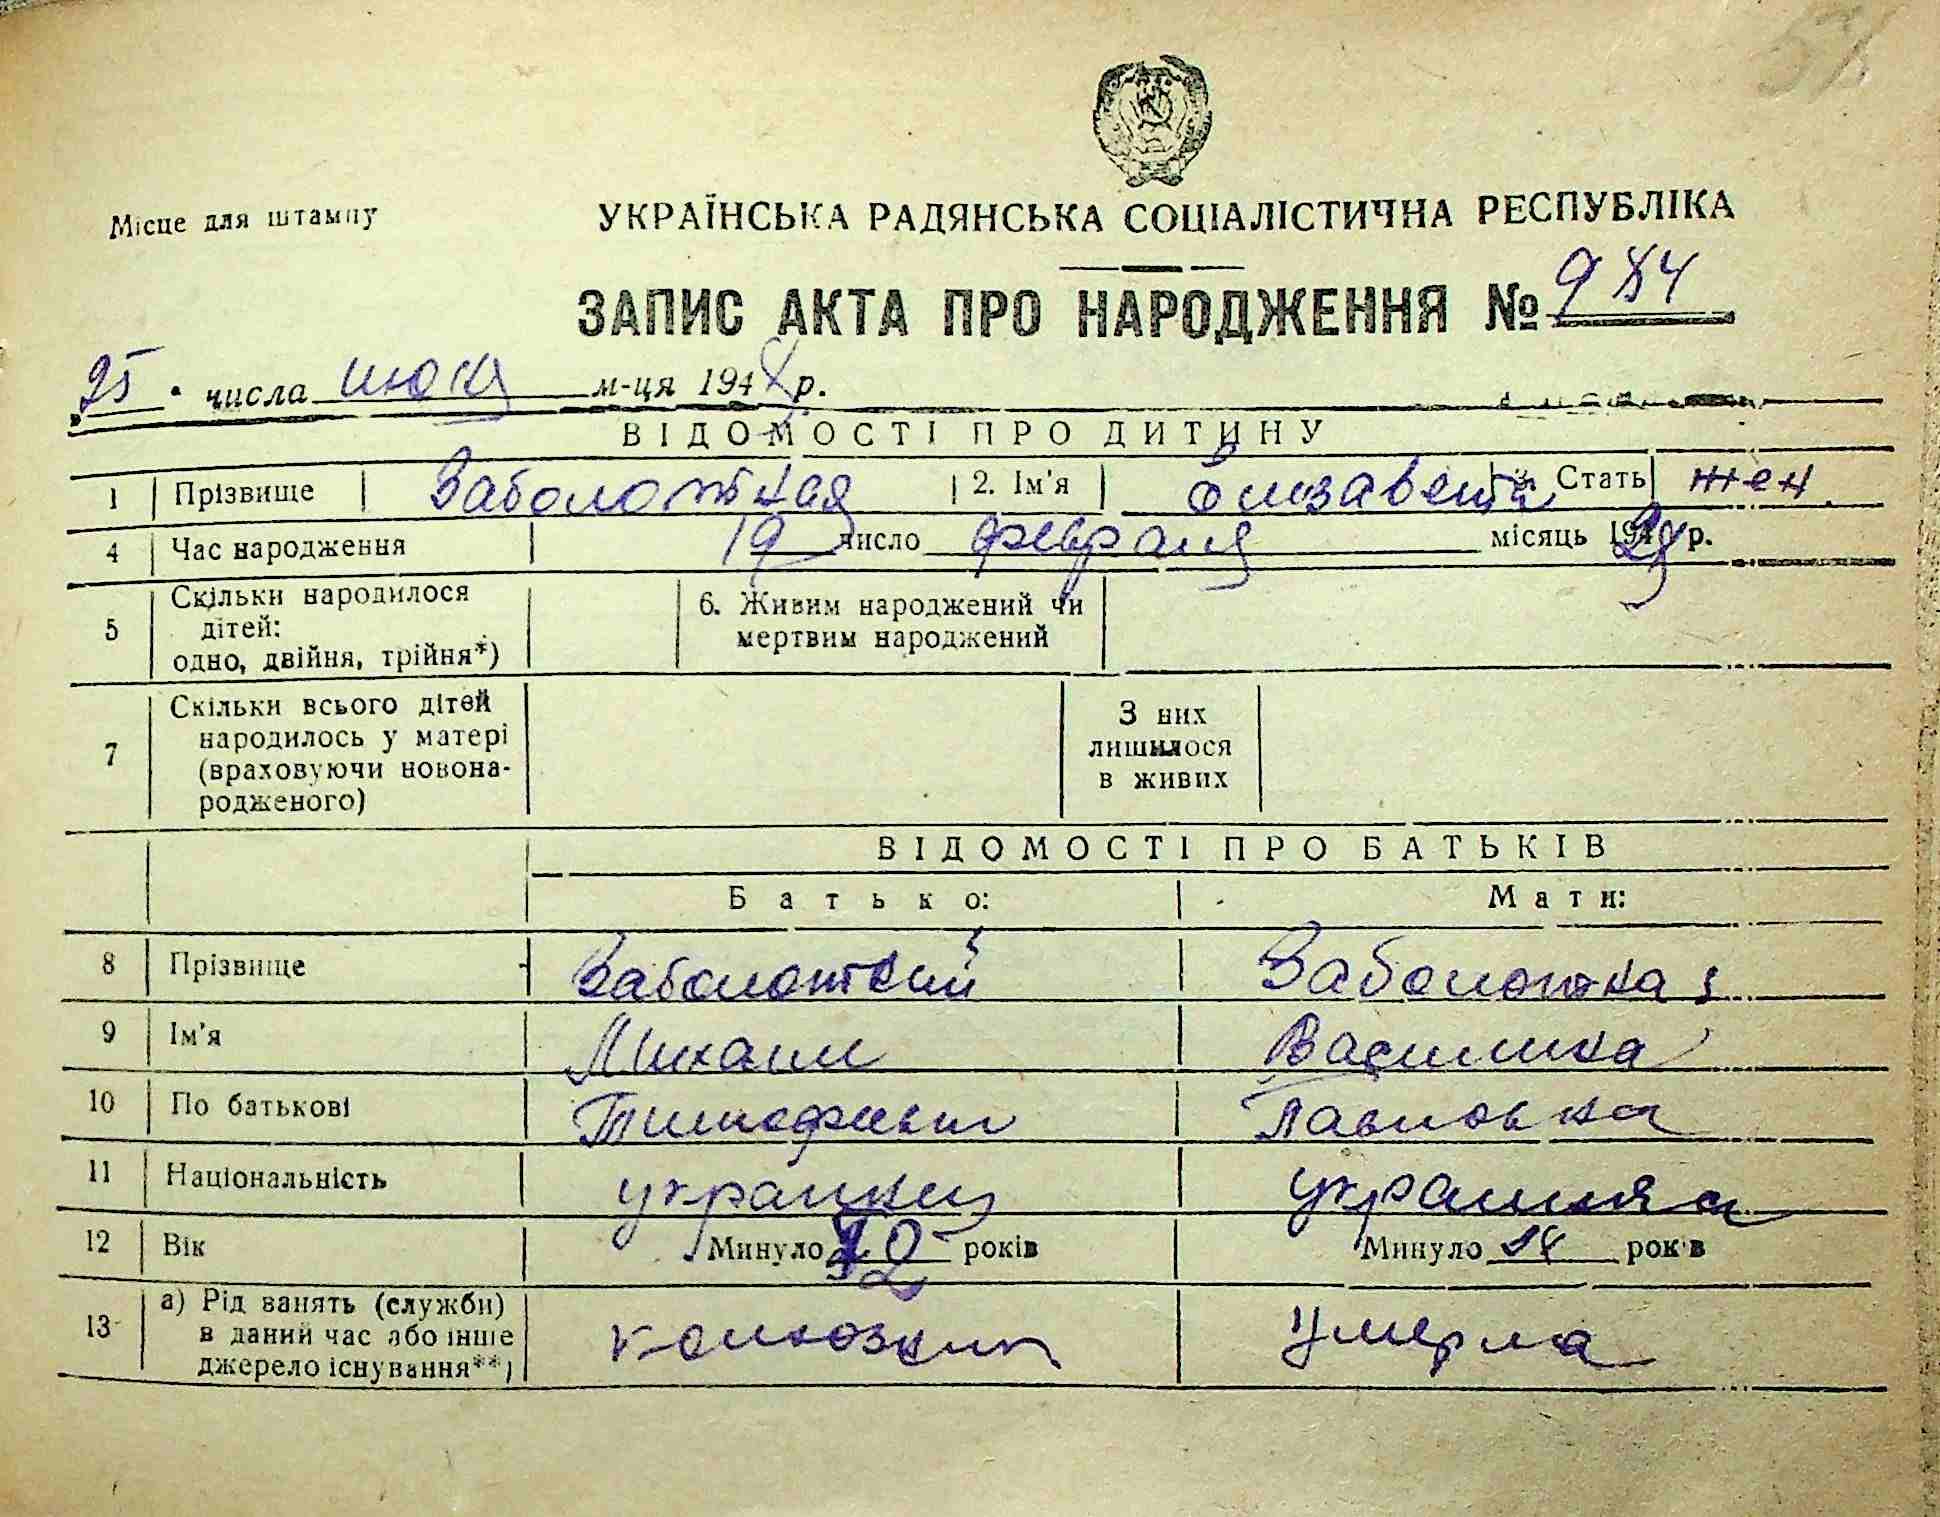 57
Місце для штампу
УКРАЇНСЬКА РАДЯНСЬКА СОЦІАЛІСТИЧНА РЕСПУБЛІКА
ЗАПИС АКТА ПРО НАРОДЖЕННЯ № 984
25 числа июля м-ця 194 р.
ВІДОМОСТІ ПРО ДИТИНУ
1 Прізвище Заболотная 2. Ім'я Елизавета 3. Стать жен.
4 Час народження 19 число февраля місяць 19 р.
5 Скільки народилося 6. Живим народжений чи
дітей: мертвим народжений
одно, двійня, трійня*)
7 Скільки всього дітей З них
народилось у матері лишилося
(враховуючи новона- в живих
родженого)
ВІДОМОСТІ ПРО БАТЬКІВ
Батько: Мати:
8 Прізвище Заболотний Заболотная
9 Ім'я Михаил Василина
10 По батькові Тимофеевич Павловна
11 Національність украинец украинка
12 Вік Минуло років Минуло років
13 а) Рід занять (служби) колхозник умерла
в даний час або інше
джерело існування**)